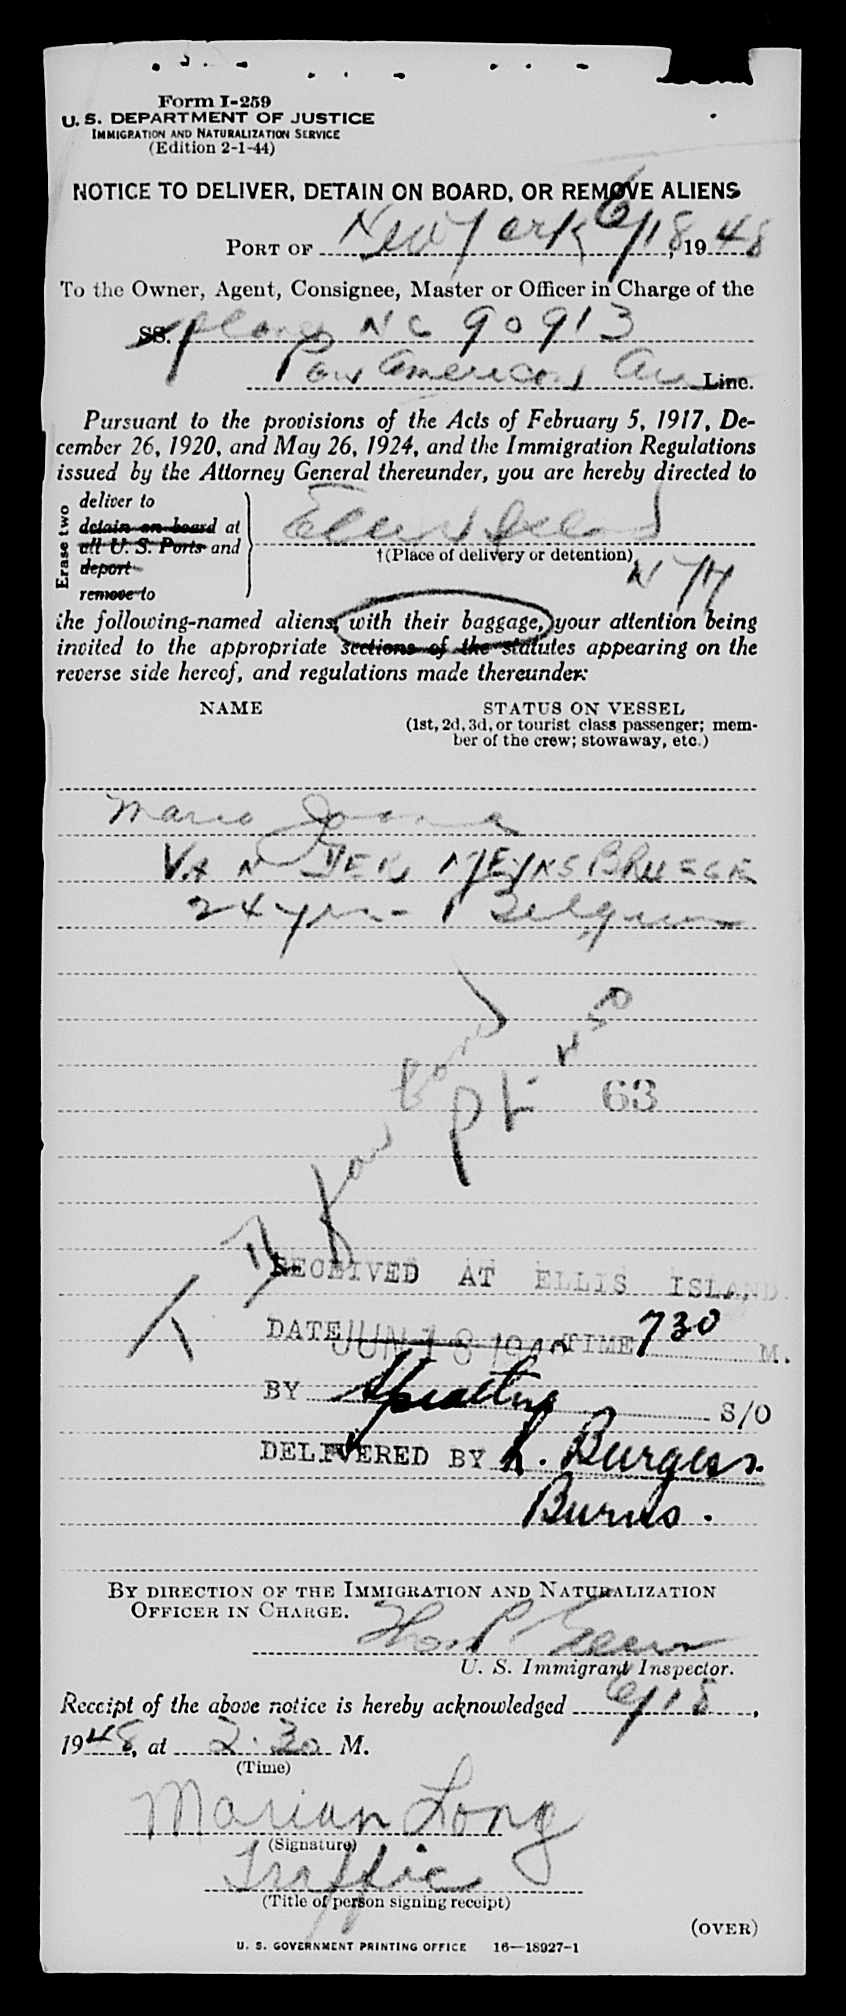 Form I-259
U. S. DEPARTMENT OF JUSTICE
IMMIGRATION AND NATURALIZATION SERVICE
(Edition 2-1-44)
NOTICE TO DELIVER, DETAIN ON BOARD, OR REMOVE ALIENS
PORT OF New York 6/18, 1948
To the Owner, Agent, Consignee, Master or Officer in Charge of the
SS. plane NC 90913
Pan American Air Line.
Pursuant to the provisions of the Acts of February 5, 1917, De-
cember 26, 1920, and May 26, 1924, and the Immigration Regulations
issued by the Attorney General thereunder, you are hereby directed to
Erase two
deliver to
detain on board at
all U. S. Ports and
deport
remove to
Ellis Island
†(Place of delivery or detention)
N Y H
the following-named aliens, with their baggage, your attention being
invited to the appropriate sections of the statutes appearing on the
reverse side hereof, and regulations made thereunder:
NAME
STATUS ON VESSEL
(1st, 2d, 3d, or tourist class passenger; mem-
ber of the crew; stowaway, etc.)
Maria
VAN DER MEYNSBRUEGE
24 yrs - Belgium
bond
63
RECEIVED AT ELLIS ISLAND
DATE JUN 18 194 TIME 730 M.
BY S/O
DELIVERED BY L. Burgess.
Burns.
BY DIRECTION OF THE IMMIGRATION AND NATURALIZATION
OFFICER IN CHARGE.
Thos. P.
U. S. Immigrant Inspector.
Receipt of the above notice is hereby acknowledged 6/18,
1948, at 2.30 M.
(Time)
Marian Long
(Signature)
Traffic
(Title of person signing receipt)
(OVER)
U. S. GOVERNMENT PRINTING OFFICE 16—18927-1